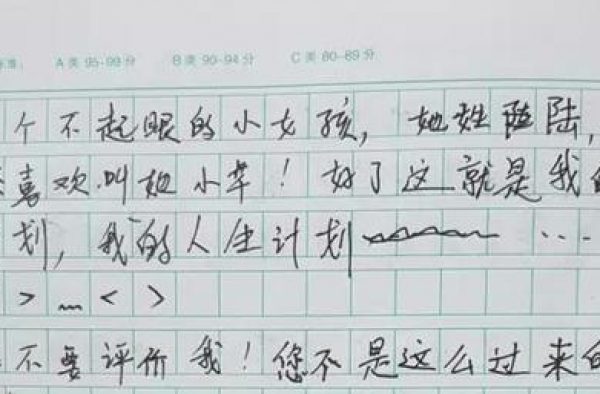 标准: A类 95-99分 B类 90-94分 C类 80-89分
个不起眼的小女孩，她姓陆，
喜欢叫她小芊！好了这就是我的
划，我的人生计划~~~~ ···
> ﹏ < >
不要评价我！您不是这么过来的